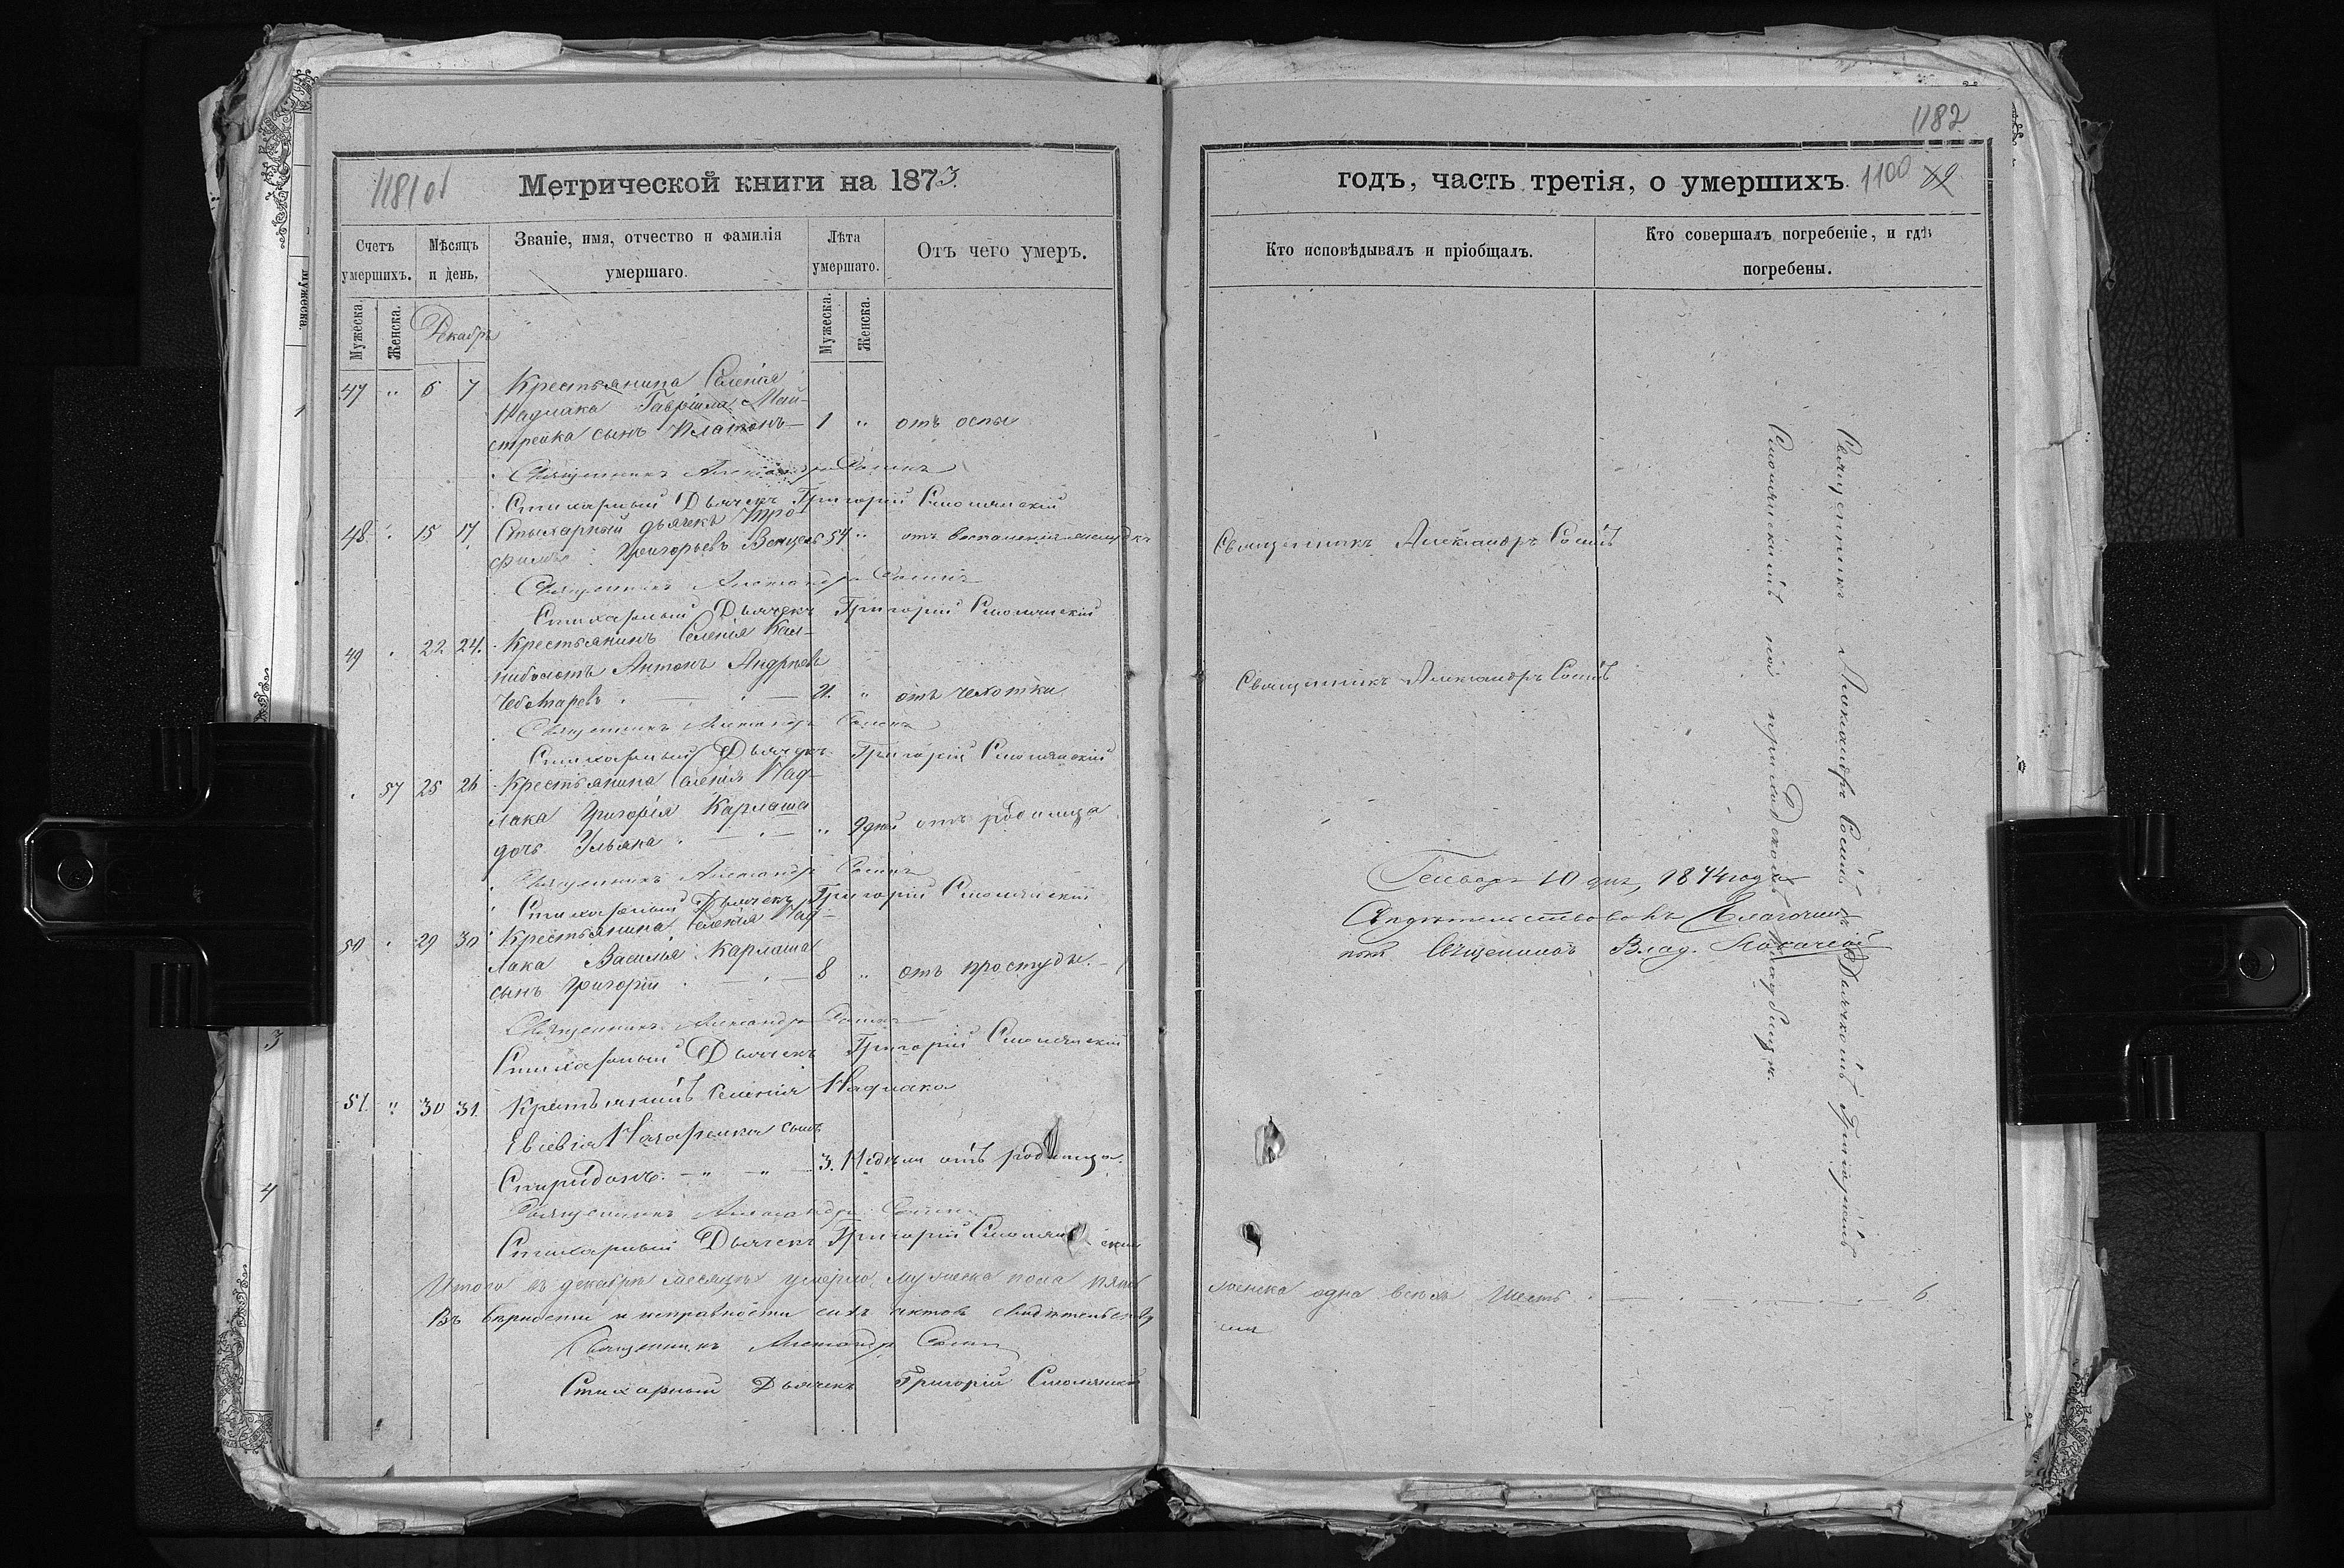 1181 об
Метрической книги на 1873.
Счетъ умершихъ.
Мѣсяцъ и день.
Званіе, имя, отчество и фамилія умершаго.
Лѣта умершаго.
Отъ чего умеръ.
Мужеска.
Женска.
Декабрь
Мужеска.
Женска.
47 " 6 7 Крестьянина Селенія
Надлака Гавріила Май-
стренка сынъ Платонъ — 1 " отъ оспы
Священникъ Александръ
Стихарный Дьячекъ Григорій Смолянскій
48 " 15 17 Стихарный дьячекъ Тро-
фимъ Григорьевъ 54 " отъ воспаленія
Священникъ Александръ
Стихарный Дьячекъ Григорій Смолянскій
49 " 22 24. Крестьянинъ Селенія Кал-
ниболотъ Антонъ Андреевъ
Чеботаревъ — 21. " отъ чехотки
Священникъ Александръ
Стихарный Дьячекъ Григорій Смолянскій
" 57 25 26 Крестьянина Селенія Над-
лака Григорія Карлаша
дочь Ульяна — " 9 дней отъ родимца
Священникъ Александръ
Стихарный Дьячекъ Григорій Смолянскій
50 " 29 30 Крестьянина Селенія Над-
лака Василія Карлаша
сынъ Григорій — 8 " отъ простуды. —
Священникъ Александръ
Стихарный Дьячекъ Григорій Смолянскій
51. " 30 31 Крестьянинъ Селенія Надлака
Евсевія Назаренка сынъ
Спиридонъ. — " — " 3. Недели отъ родимца.
Священникъ Александръ
Стихарный Дьячекъ Григорій Смолянскій
Итого въ декабрѣ месяцѣ умерло, мужеска пола пять
Въ верности и исправности сихъ актовъ свидѣтельству
Священникъ Александръ
Стихарный Дьячекъ Григорій Смолянскій
1182
годъ, часть третія, о умершихъ.
1100
89
Кто исповѣдывалъ и пріобщалъ.
Кто совершалъ погребеніе, и гдѣ погребены.
Священникъ Александръ
Священникъ Александръ
Священникъ Александръ съ Дьячкомъ Григоріемъ
Смолянскимъ на приходскомъ кладбищѣ.
Генваря 10 дня, 1874 года
Свидѣтельствовалъ Благочин-
ный Священникъ Влад.
женска одна всехъ шесть — 6
емъ